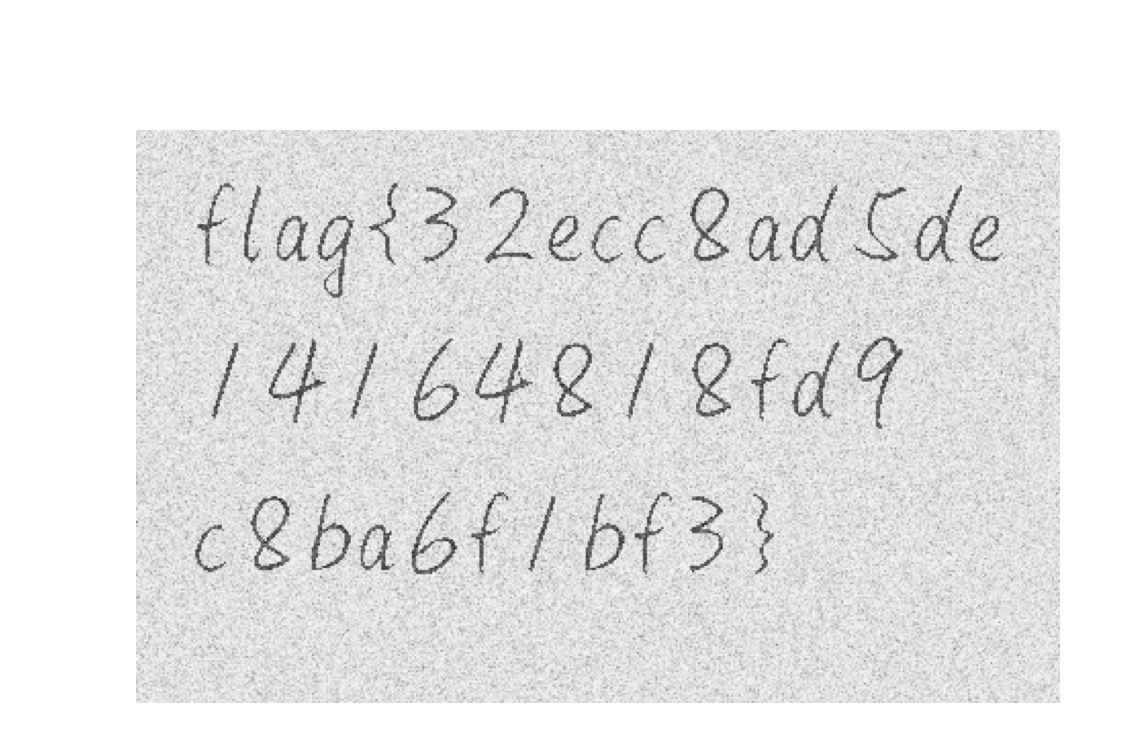 flag{32ecc8ad5de
14164818fd9
c8ba6f1bf3}